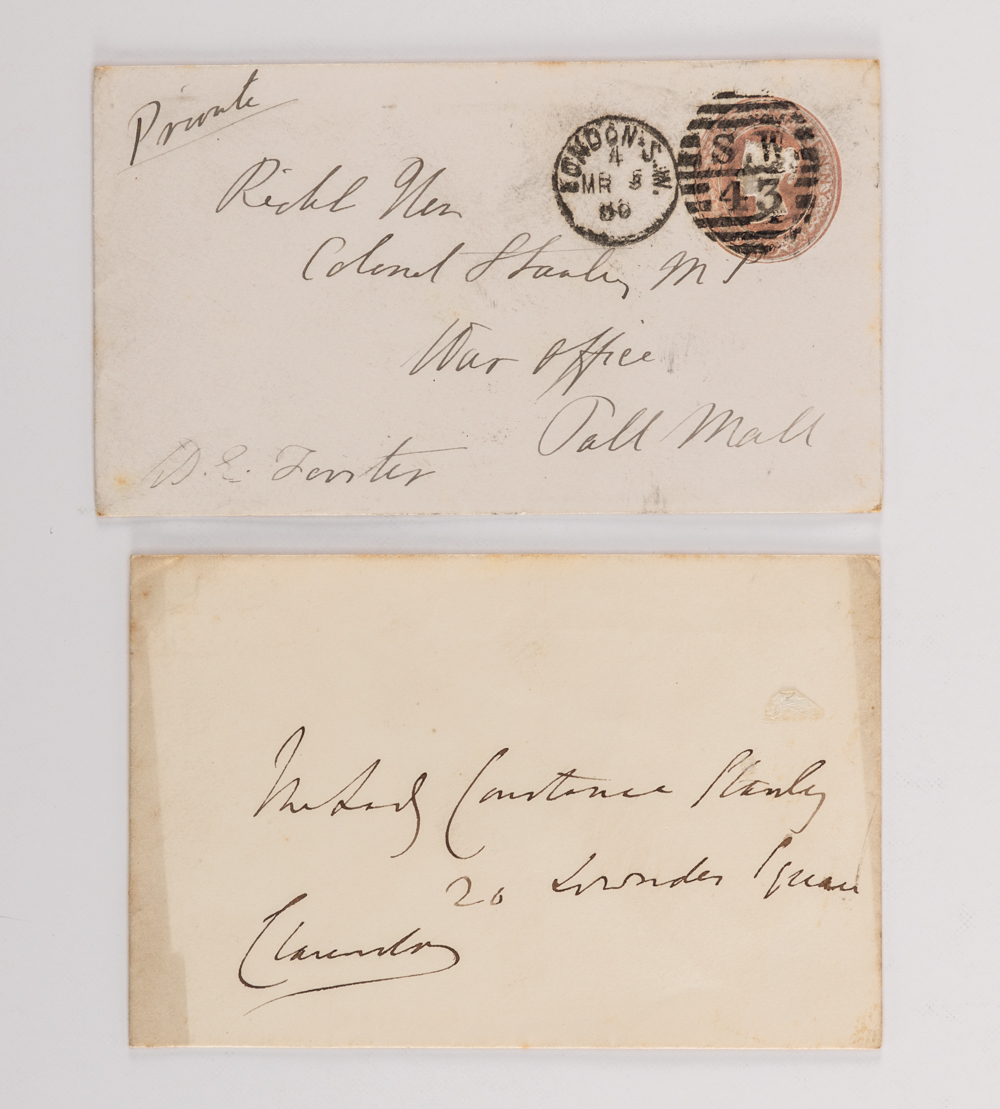 Private
LONDON·S.W.
4
MR 5
80
S.W.
43
Right Hon
Colonel Stanley M P
War Office
Pall Mall
W. E. Forster
The Lady Constance Stanley
20 Lowndes Square
Clarendon